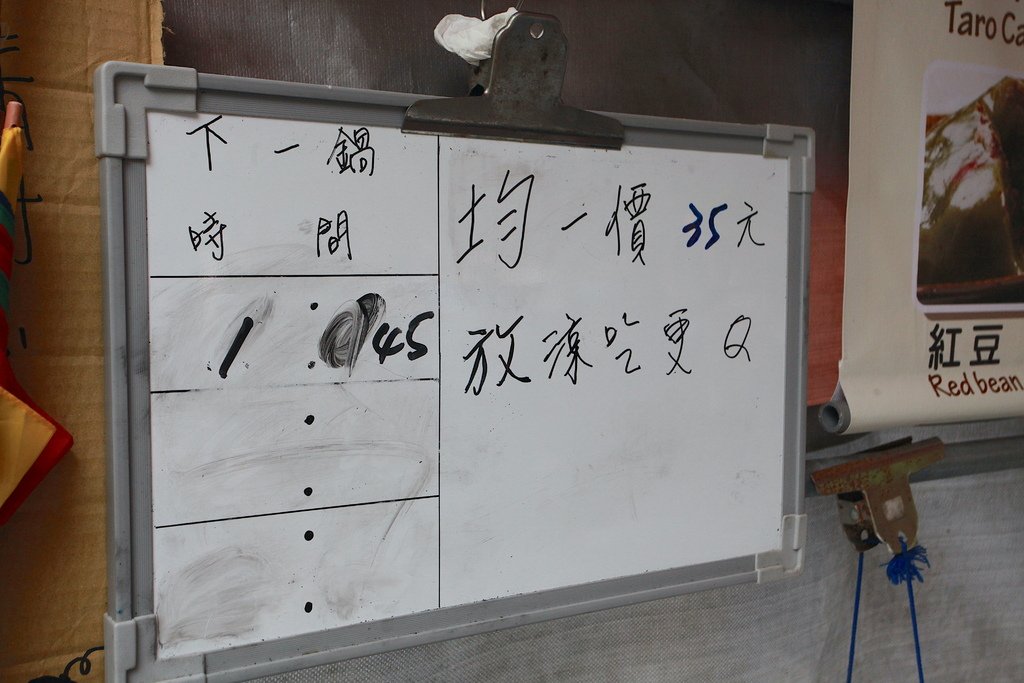 下一鍋
時間
1:45
均一價 35元
放涼吃更Q
Taro Ca
紅豆
Red bean